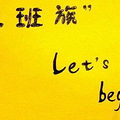 班族"
Let's
be